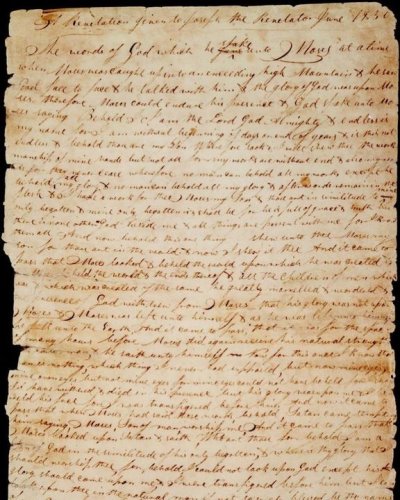 A Revelation given to Joseph the Revelator June 1830
The words of God which he spake unto Moses at a time
when Moses was caught up into an exceeding high Mountain & he saw
God face to face & he talked with him & the glory of God was upon Mo
ses therefore Moses could endure his presence & God spake unto Mo
ses saying Behold I am the Lord God Almighty & endless is
my name for I am without beginning of days or end of years & is this not
endless & behold thou art my Son Wherefore look & I will shew thee the work
manship of mine hands but not all for my works are without end & also my wo
rds for they never cease wherefore no man can behold all my works except he
behold all my glory & no man can behold all my glory & afterwards remain in the
flesh & I have a work for thee Moses my Son & thou art in similitude to my
only begotten & mine only begotten is & shall be for he is full of grace & truth but
there is none other God beside me & all things are present with me for I know
them all & now behold this one thing I shew unto thee Moses my
son for thou art in the world & now I shew it thee And it came to
pass that Moses looked & beheld the world upon which he was created &
as Moses beheld the world & the ends thereof & all the Children of men which
was & which was created of the same he greatly marvelled & wondered &
the presence of God withdrew from Moses that his glory was not upon
Moses & Moses was left unto himself & as he was left unto himself
he fell unto the Earth And it came to pass that it was for the space
of many hours before Moses did again receive his natural strength
like unto man & he saith unto himself now for this once I know that
man is nothing which thing I never had supposed but now mine eyes
mine own eyes but not mine eyes for mine eyes could not have beheld for I should
have withered & died in his presence but his glory was upon me & I be
held his face for I was transfigured before him And now it came to
pass that when Moses had said these words behold Satan came tempt
ing him saying Moses Son of man worship me And it came to pass that
Moses looked upon Satan & saith Who art thou for behold I am a
Son of God in the similitude of his only begotten & where is thy glory that
I should worship thee for behold I could not look upon God except his
glory should come upon me & I were transfigured before him But I
can look upon thee in the natural man